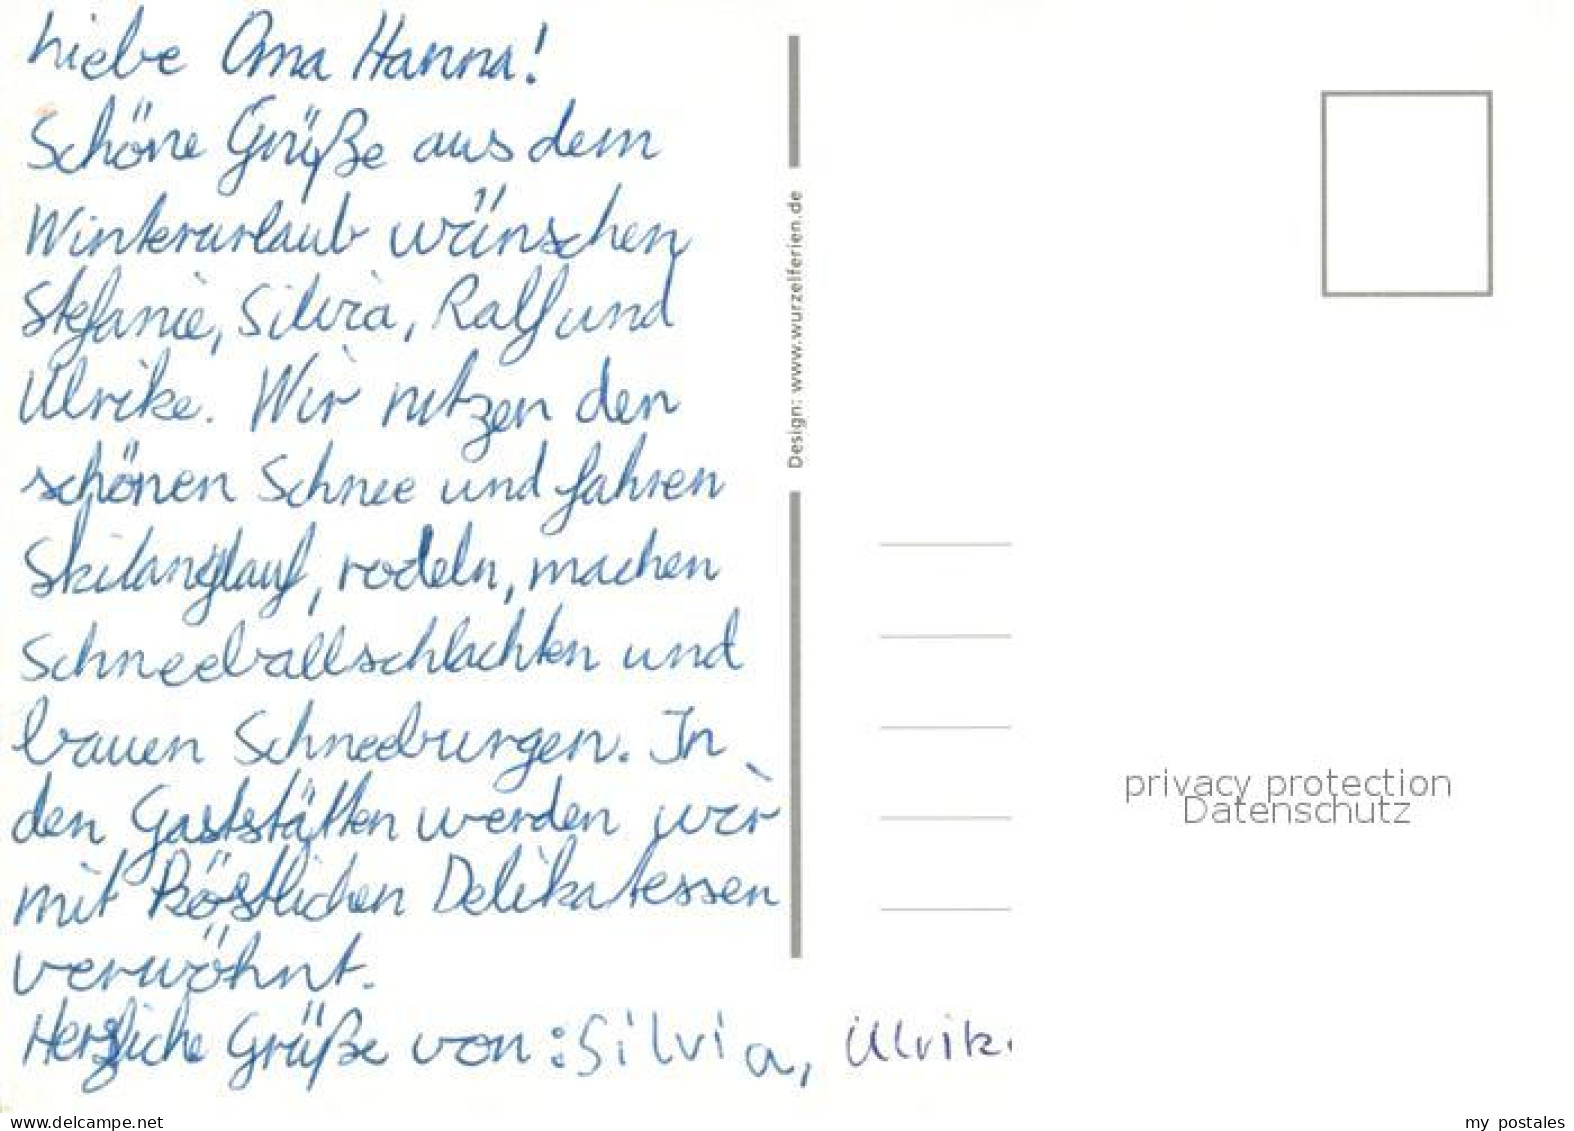 Liebe Oma Hanna!
Schöne Grüße aus dem
Winterurlaub wünschen
Stefanie, Silvia, Ralf und
Ulrike. Wir nutzen den
schönen Schnee und fahren
Skilanglauf, rodeln, machen
Schneeballschlachten und
bauen Schneeburgen. In
den Gaststätten werden wir
mit köstlichen Delikatessen
verwöhnt.
Herzliche Grüße von: Silvia, Ulrik
Design: www.wurzelferien.de
privacy protection
Datenschutz
www.delcampe.net
my postales